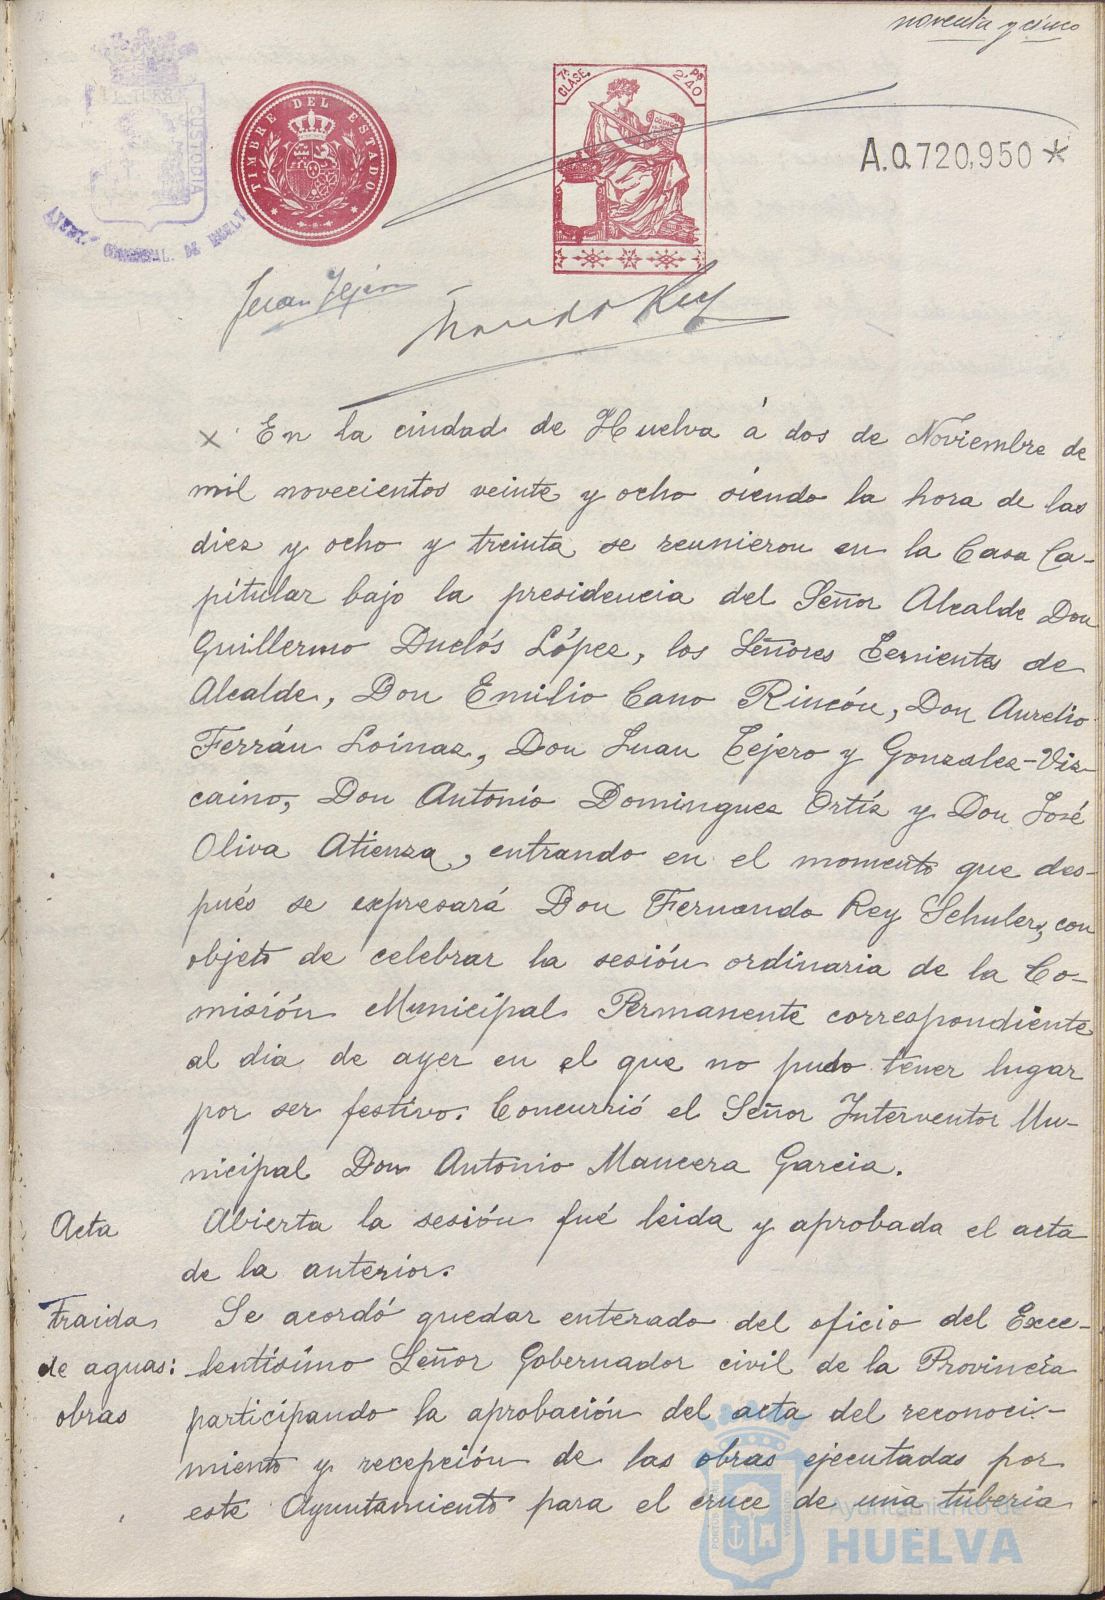 noventa y cinco
TIMBRE DEL ESTADO
7ª CLASE
2'40
CODIGO
A.0.720,950 *
CUSTODIA
AYUNT.º DE HUELVA
Juan Tejero
Fernando Rey
x En la ciudad de Huelva á dos de Noviembre de
mil novecientos veinte y ocho siendo la hora de las
diez y ocho y treinta se reunieron en la Casa Ca-
pitular bajo la presidencia del Señor Alcalde Don
Guillermo Duclós López, los Señores Tenientes de
Alcalde, Don Emilio Cano Rincón, Don Aurelio
Ferrán Loinaz, Don Juan Tejero y Gonzalez-Viz-
caino, Don Antonio Dominguez Ortíz y Don José
Oliva Atienza, entrando en el momento que des-
pués se expresará Don Fernando Rey Schuler, con
objeto de celebrar la sesión ordinaria de la Co-
misión Municipal Permanente correspondiente
al dia de ayer en el que no pudo tener lugar
por ser festivo. Concurrió el Señor Interventor Mu-
nicipal Don Antonio Mancera Garcia.
Acta Abierta la sesión fué leida y aprobada el acta
de la anterior.
Traida Se acordó quedar enterado del oficio del Exce-
de aguas: lentísimo Señor Gobernador civil de la Provincia
obras participando la aprobación del acta del reconoci-
miento y recepción de las obras ejecutadas por
este Ayuntamiento para el cruce de una tuberia
Ayuntamiento de
HUELVA